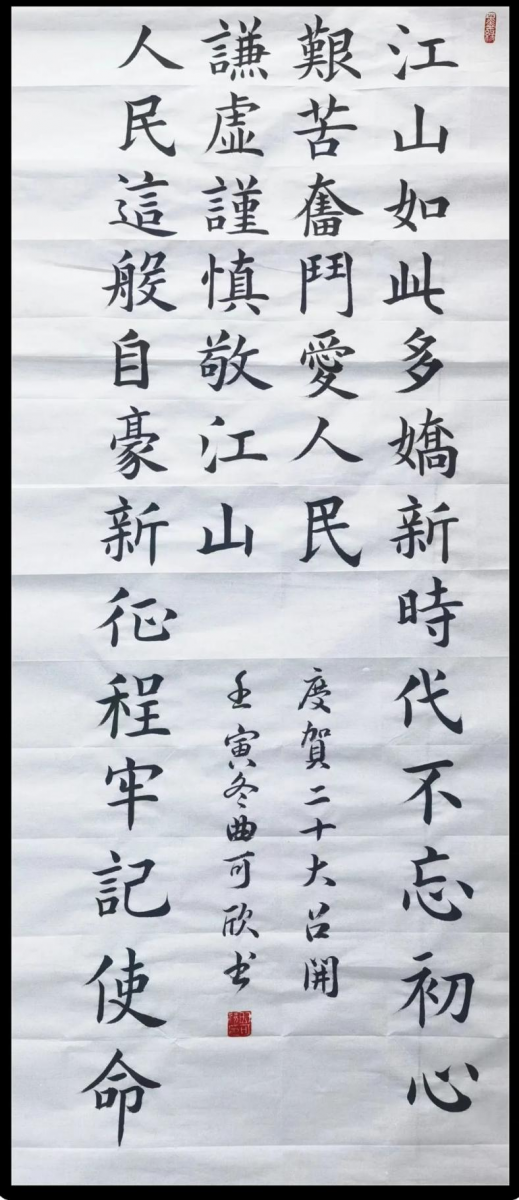 江山如此多嬌新時代不忘初心
艱苦奮鬥愛人民
人民這般自豪新征程牢記使命
謙虛謹慎敬江山
慶賀二十大召開
壬寅冬曲可欣书